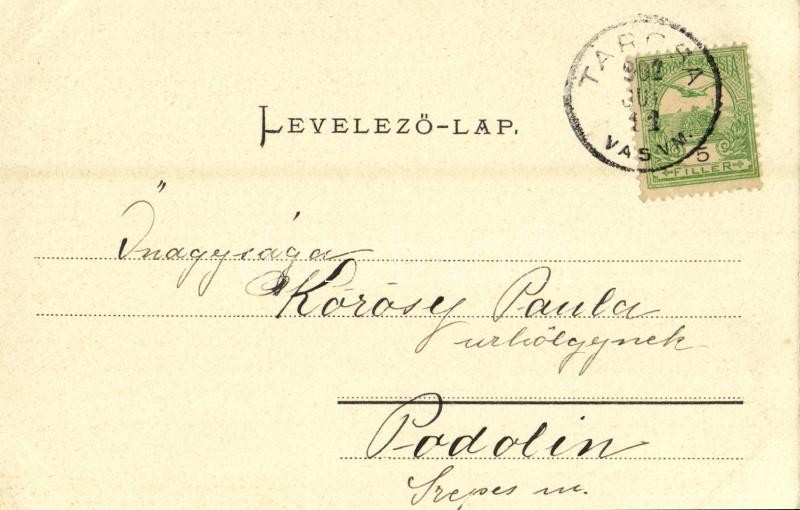 LEVELEZŐ-LAP.
TARCSA
902
VAS VM.
5
FILLER
Őnagysága
Kőrősy Paula
urhölgynek
Podolin
Szepes m.